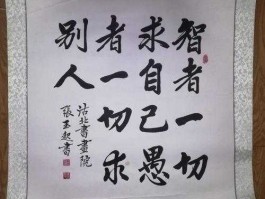 智者一切
求自己愚
者一切求
别人
沽北書畫院
張玉起書